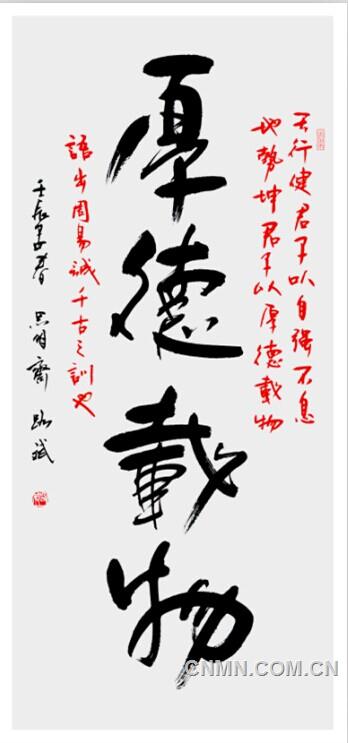 天行健君子以自强不息
地勢坤君子以厚德載物
厚德載物
語出周易誠千古之訓也
壬辰孟春 齋
CNMN.COM.CN